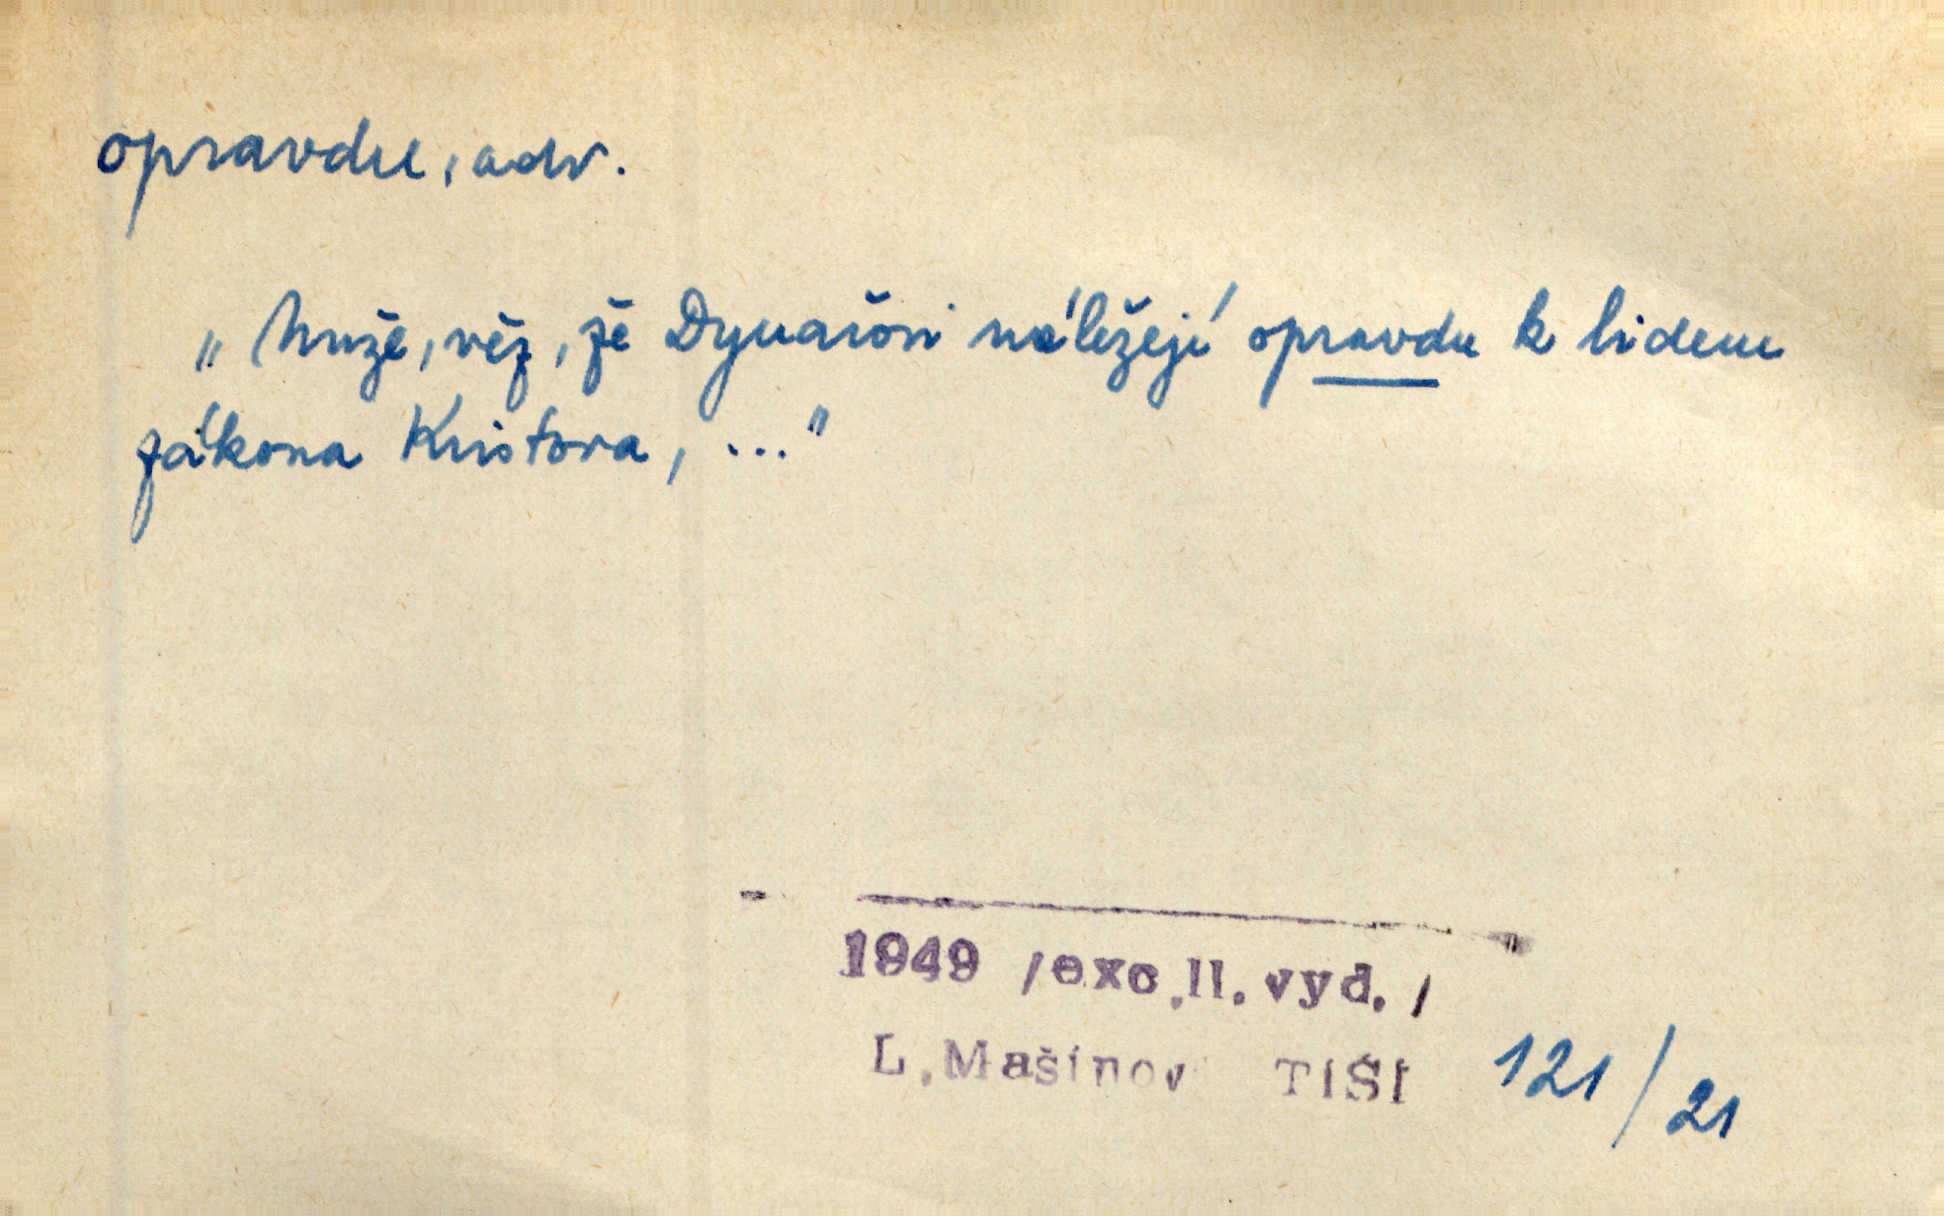 opravdu, adv.
„Nuže, věz, že Dynaiōni náležejí opravdu k lidem
zákona Kristova, ..."
1949 /exc.II. vyd./
L.Mašínov TIŠI 121/21